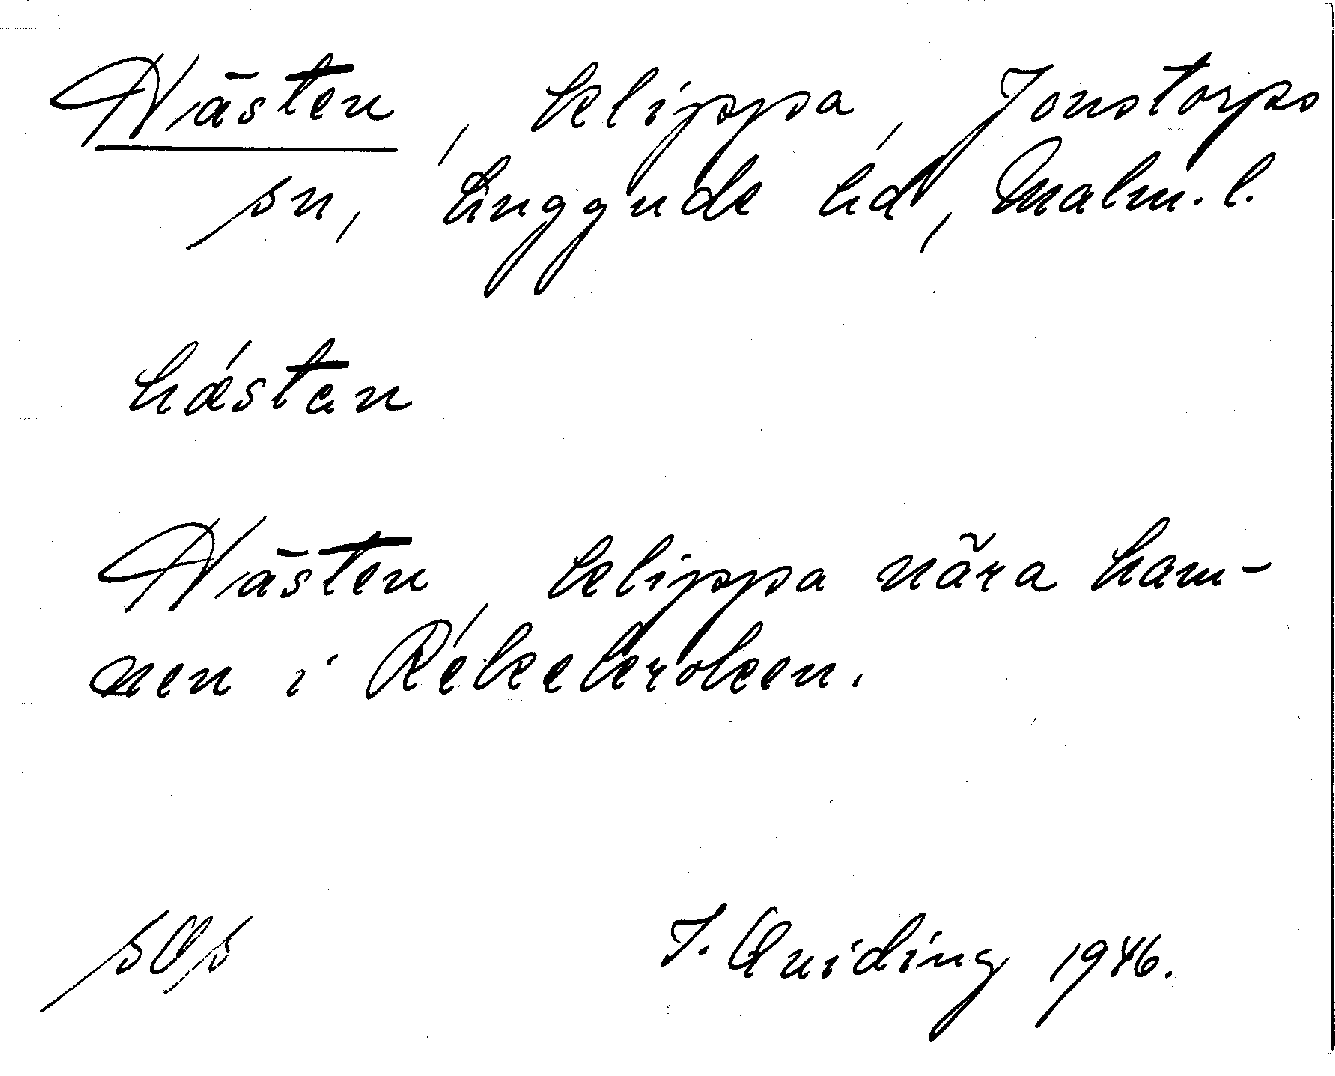 Hästen, klippa, Jonstorps
sn, Luggude hd, Malm. l.
hǽstan
Hästen, klippa nära ham-
nen i Rékekroken.
sOs J. Quiding 1946.